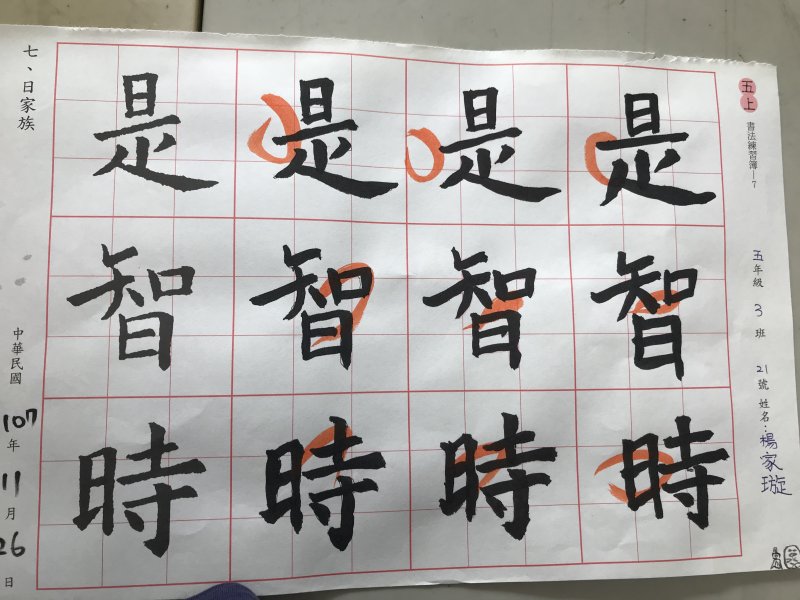 五上
書法練習簿—7
五年級 3 班 21 號 姓名：楊家璇
是 是 是 是
智 智 智 智
時 時 時 時
七、日家族
中華民國 107 年 11 月 26 日